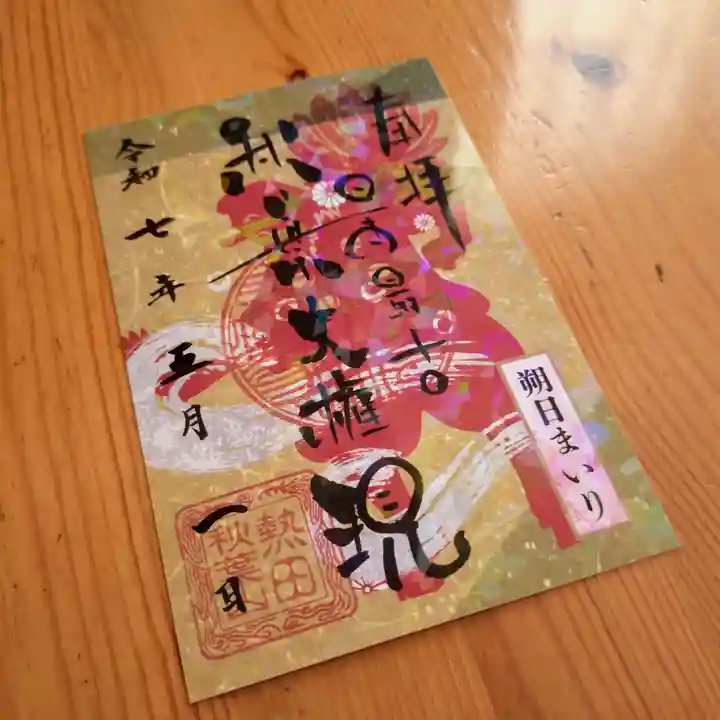 奉拝
日日大最吉
秋葉大権現
令和七年五月一日
朔日まいり
熱田
秋葉山